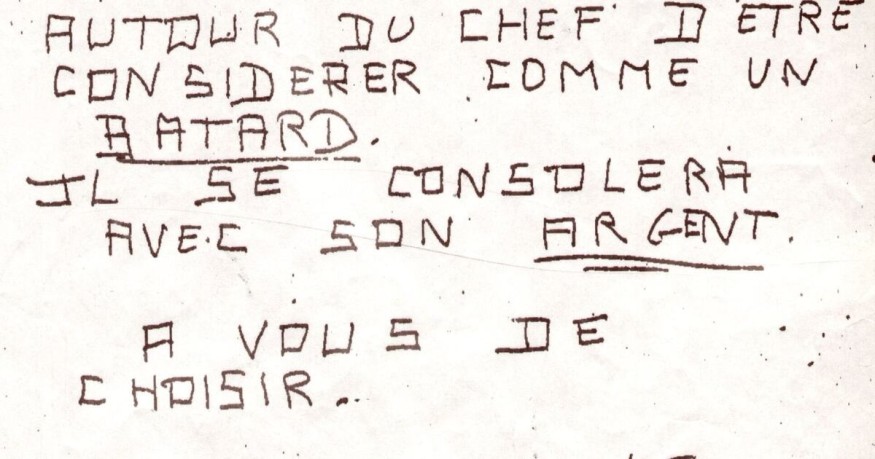 AUTOUR DU CHEF D ETRE
CONSIDERER COMME UN
BATARD.
IL SE CONSOLERA
AVEC SON ARGENT.
A VOUS DE
CHOISIR.